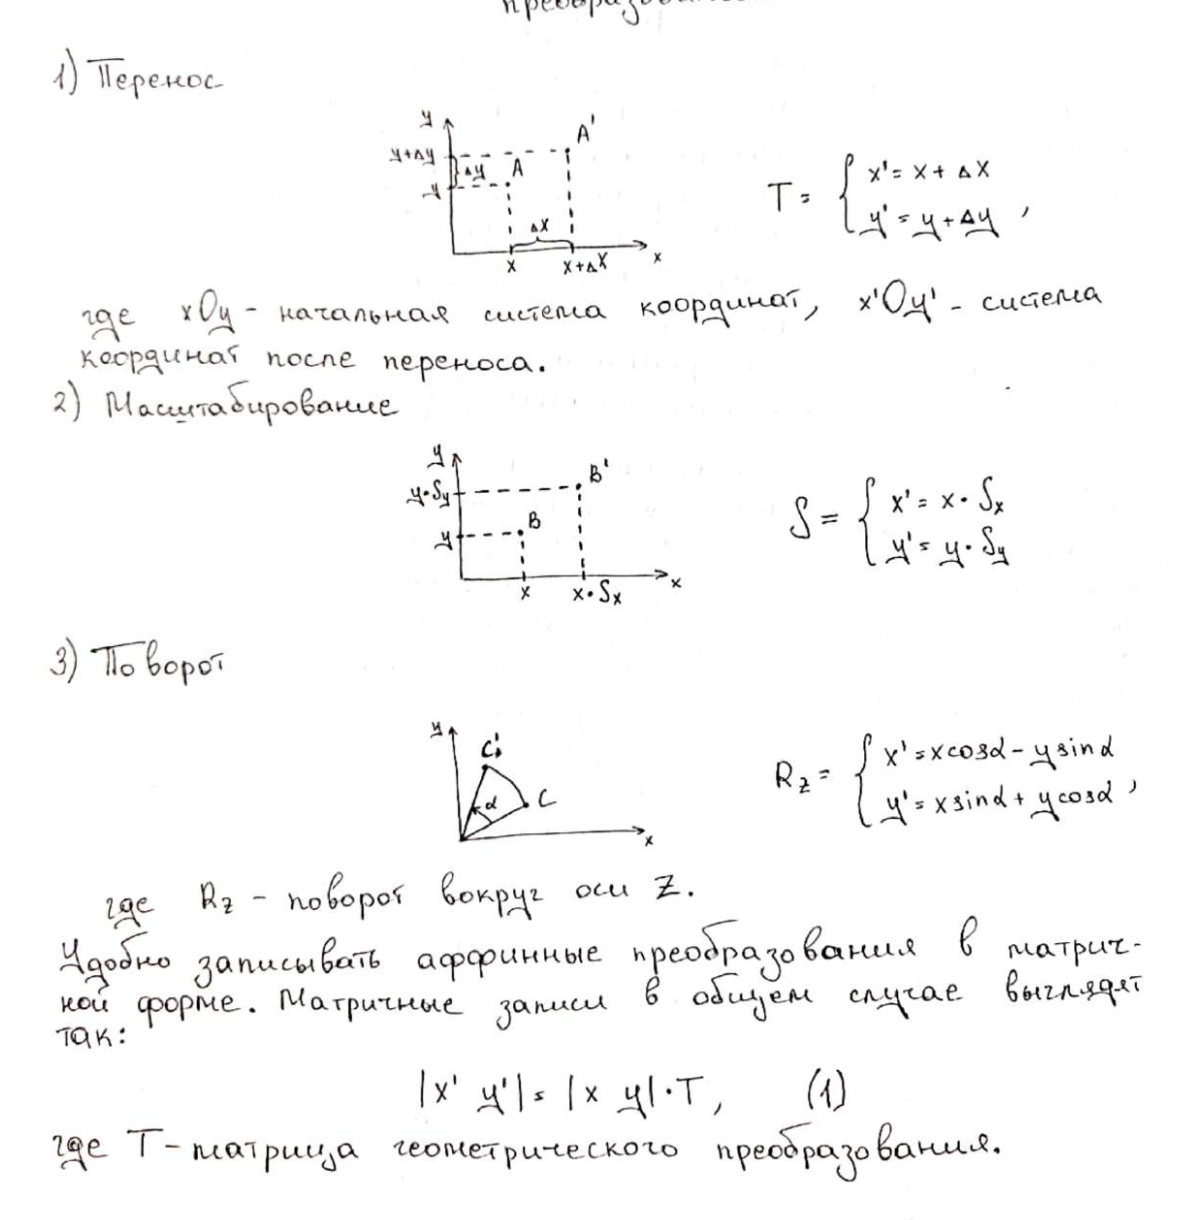 1) Перенос
y
A'
y+Δy
Δy
A
y
Δx
x
x+Δx
x
T = { x' = x + Δx
y' = y + Δy ,
где xOy - начальная система координат, x'Oy' - система
координат после переноса.
2) Масштабирование
y
B'
y·Sy
B
y
x
x·Sx
x
S = { x' = x · Sx
y' = y · Sy
3) Поворот
y
C'
α
C
x
Rz = { x' = x cosα - y sinα
y' = x sinα + y cosα ,
где Rz - поворот вокруг оси Z.
Удобно записывать аффинные преобразования в матрич-
ной форме. Матричные записи в общем случае выглядят
так:
|x' y'| = |x y| · T, (1)
где T - матрица геометрического преобразования.